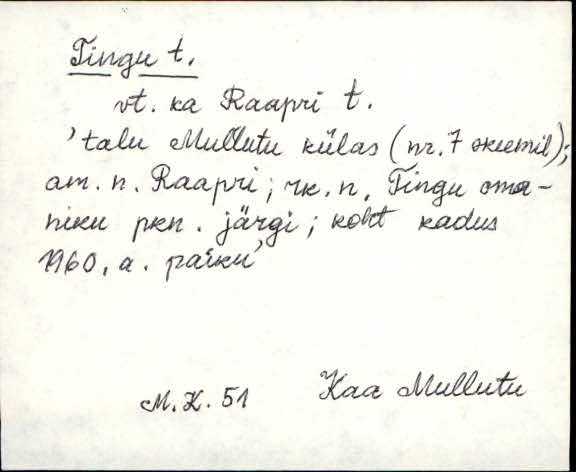 Tingu t.
vt. ka Raapri t.
'talu Mullutu külas (nr. 7 skeemil);
am. n. Raapri; rk. n. Tingu oma-
niku pkn. järgi; koht kadus
1960. a. paiku'
M. K. 51 Kaa Mullutu